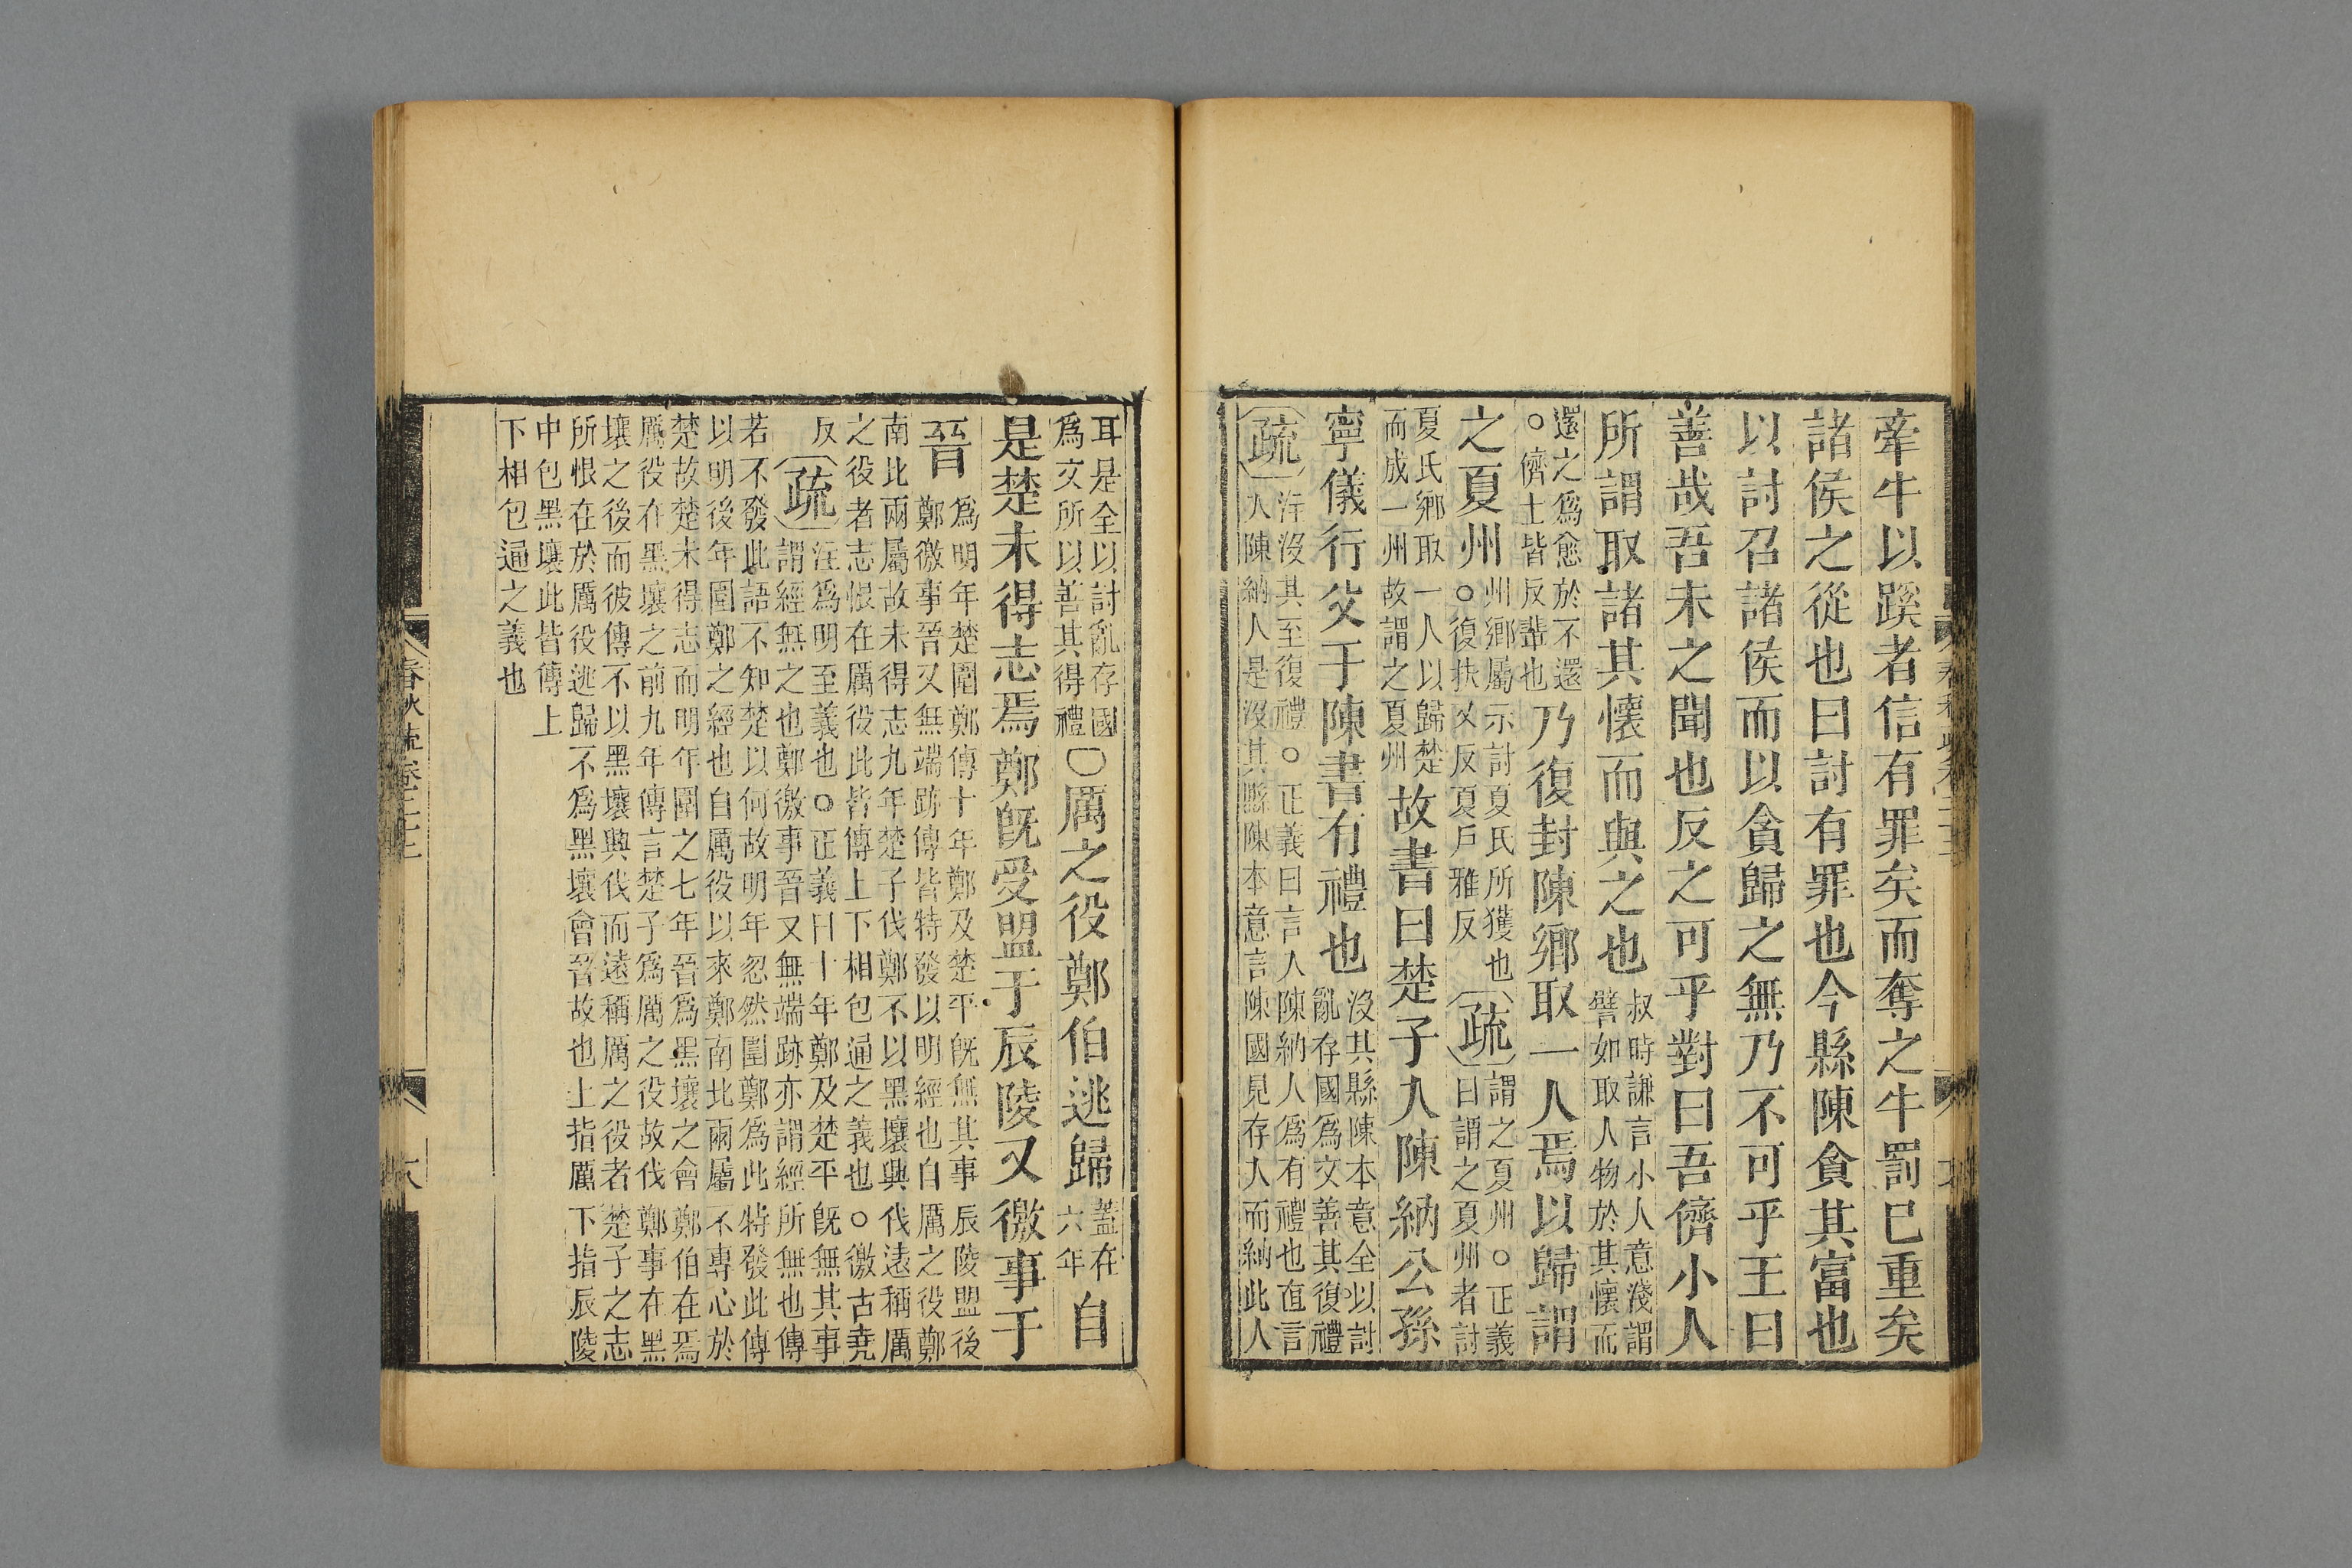 牽牛以蹊者信有罪矣而奪之牛罰已重矣
諸侯之從也曰討有罪也今縣陳貪其富也
以討召諸侯而以貪歸之無乃不可乎王曰
善哉吾未之聞也反之可乎對曰吾儕小人
所謂取諸其懷而與之也叔時謙言小人意淺謂
譬如取人物於其懷而
還之爲愈於不還
○儕士皆反輩也乃復封陳鄉取一人焉以歸謂
之夏州州鄉屬示討夏氏所獲也
○復扶又反夏戶雅反疏謂之夏州○正義
曰謂之夏州者討
夏氏鄉取一人以歸楚
而成一州故謂之夏州故書曰楚子入陳納公孫
寧儀行父于陳書有禮也沒其縣陳本意全以討
亂存國爲文善其復禮
疏注沒其至復禮○正義曰言入陳納人爲有禮也直言
入陳納人是沒其縣陳本意言陳國見存入而納此人
耳是全以討亂存國
爲文所以善其得禮○厲之役鄭伯逃歸蓋在
六年自
是楚未得志焉鄭旣受盟于辰陵又徼事于
晉爲明年楚圍鄭傳十年鄭及楚平旣無其事辰陵盟後
鄭徼事晉又無端跡傳皆特發以明經也自厲之役鄭
南北兩屬故未得志九年楚子伐鄭不以黑壤興伐遠稱厲
之役者志恨在厲役此皆傳上下相包通之義也○徼古堯
反疏注爲明至義也○正義曰十年鄭及楚平旣無其事
謂經無之也鄭徼事晉又無端跡亦謂經所無也傳
若不發此語不知楚以何故明年忽然圍鄭爲此特發此傳
以明後年圍鄭之經也自厲役以來鄭南北兩屬不專心於
楚故楚未得志而明年圍之七年晉爲黑壤之會鄭伯在焉
厲役在黑壤之前九年傳言楚子爲厲之役故伐鄭事在黑
壤之後而彼傳不以黑壤興伐而遠稱厲之役者楚子之志
所恨在於厲役逃歸不爲黑壤會晉故也上指厲下指辰陵
中包黑壤此皆傳上
下相包通之義也
春秋疏卷二十二